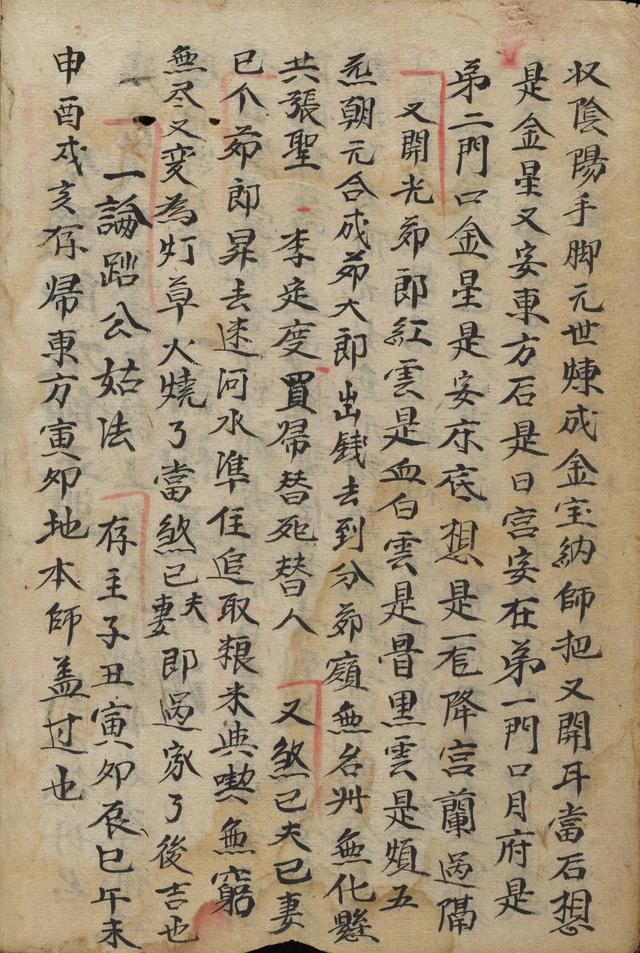 収陰陽手脚元世煉成金宝納師把又開耳當石想
是金星又安東方石是日宮安在第一門口月府是
弟二門口金星是安床底想是一𡧸降宮蘭過隔
又開光茆郎紅雲是血白雲是骨黒雲是煩五
炁朝元合成茆大郎出銭去到分茆嶺無名州無化懸
共張聖李定度買帰替死替人又煞己夫己妻
已个茆郎昇去逺河水準住追取粮米典喫無窮
無尽又変為灯草火燒了當煞己夫妻即過家了後吉也
一論跆公姑法存主子丑寅卯辰巳午未
申酉戌亥豕帰東方寅卯地本師盖过也